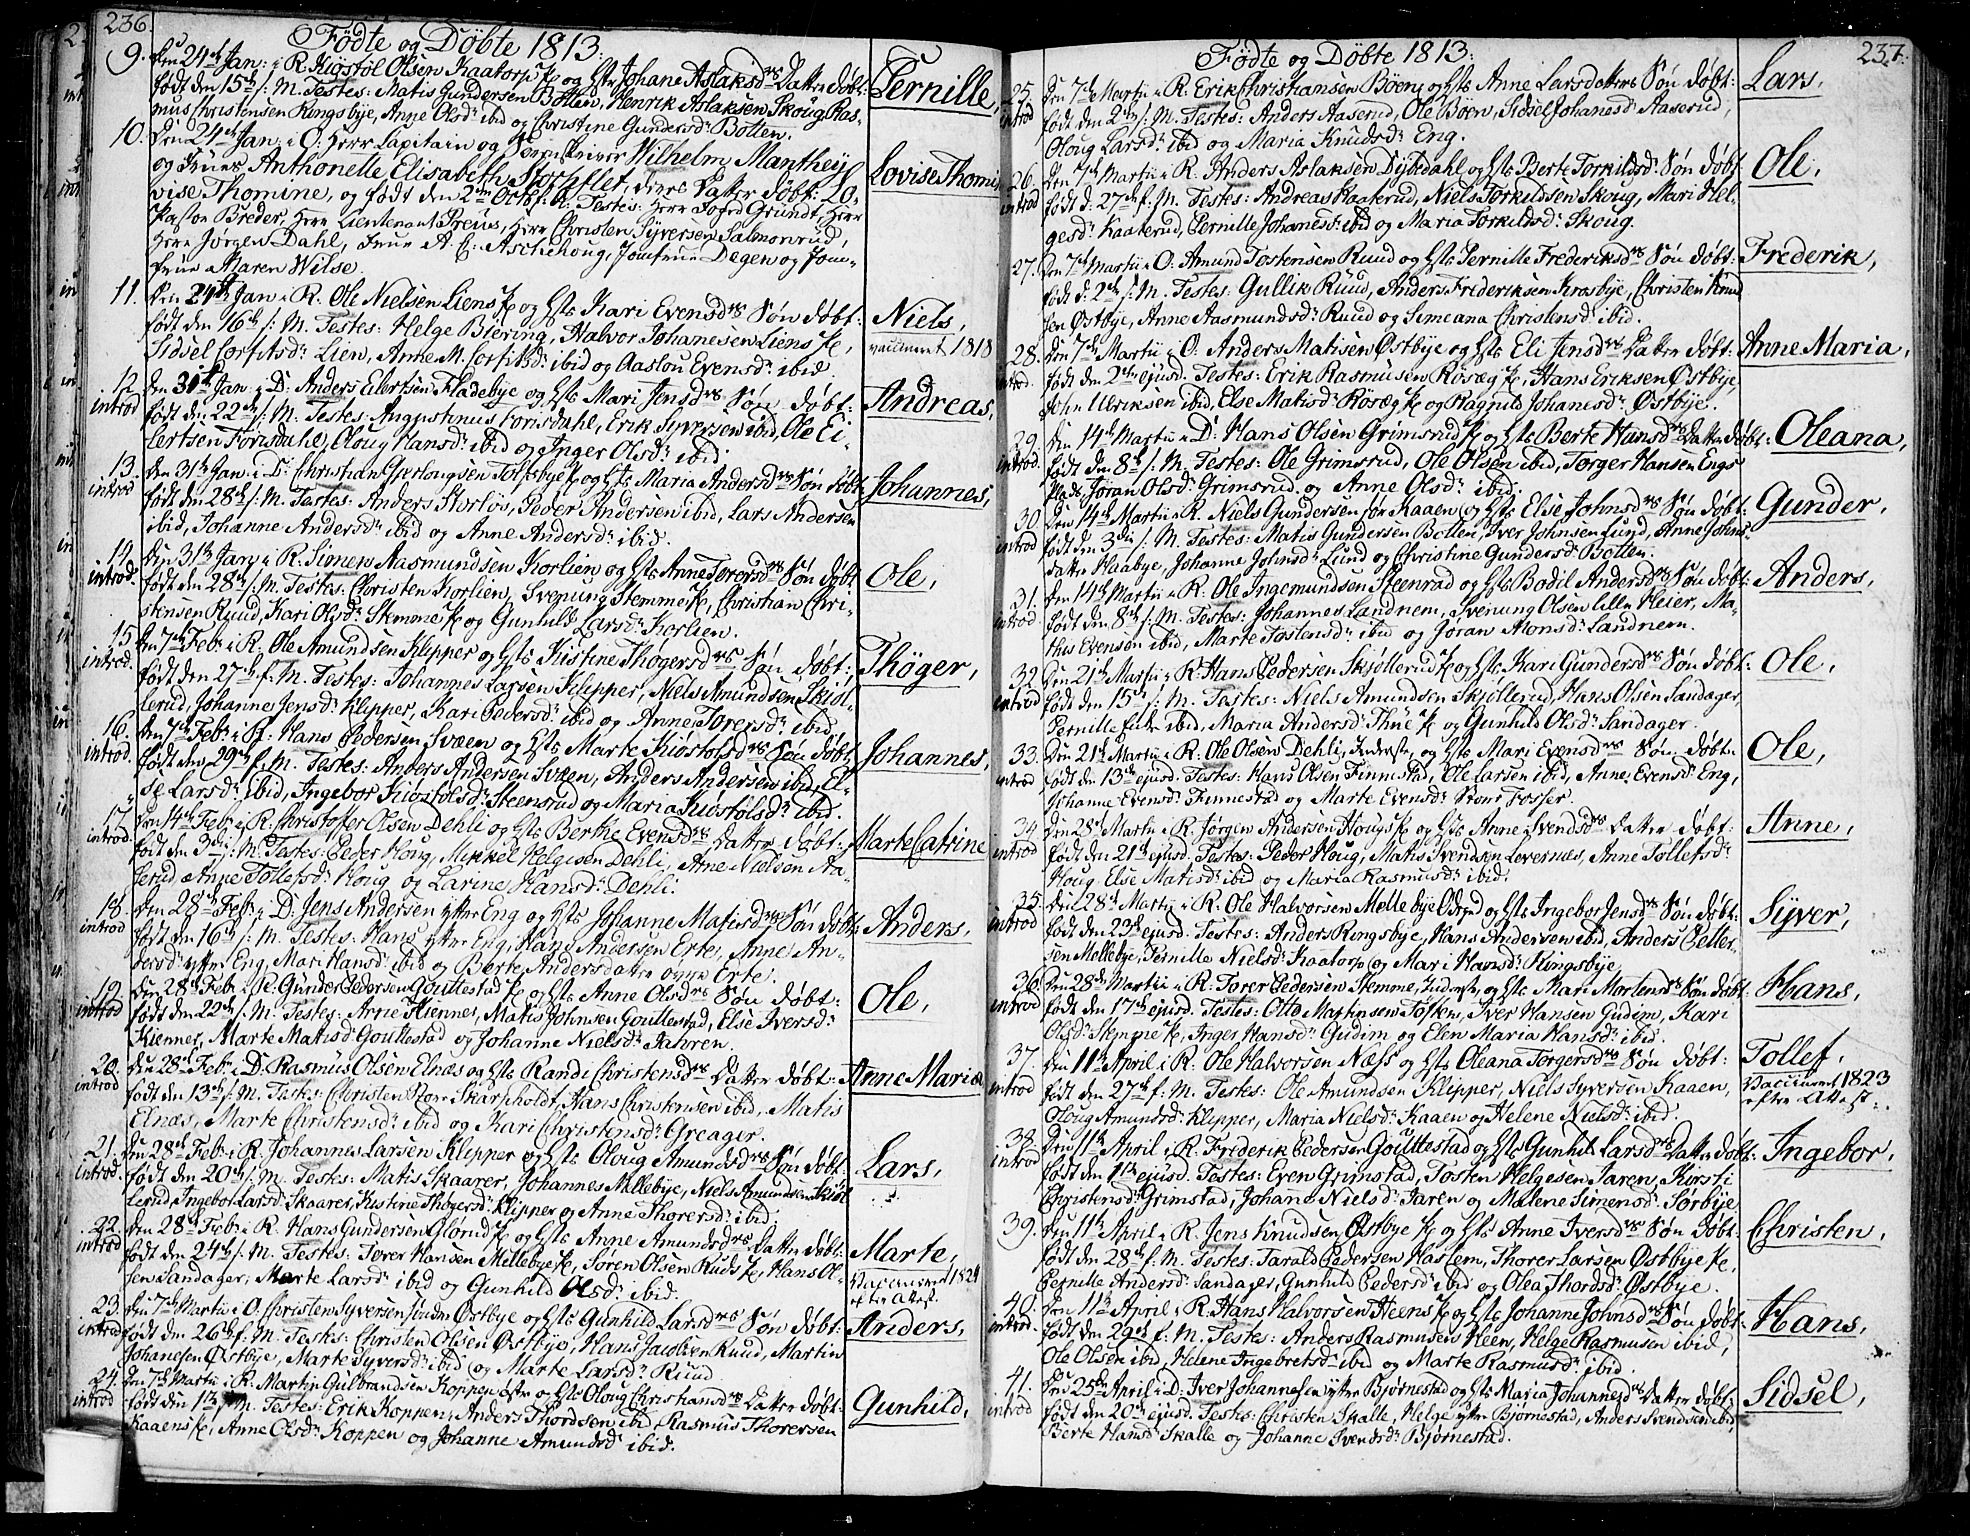 236.
Fødte og Døbte 1813.
9. Den 24de Jan: i R. Kiøstøl Olsen Kaatorp og Hst: Johane Aslaksdrs Datter døbt: Pernille,
født den 15de s: M. Testes: Matis Gundersen Botten, Henrik Aslaksen Skoug, Ras-
mus Christensen Ringsbye, Anne Olsdr ibid og Christine Gundersdr Botten.
10. Den 24de Jan: i O: Herr Capitain og Wilhelm Manthey
og Frues Anthonette Elisabeth Stockflet, deres Datter døbt: Lo- Lovise Thomine
vise Thomine, og født den 2den Octobr: Testes: Herr Foged Grundt, Herr
Pastor Breder, Herr Lieutenant Preus, Herr Christen Syversen Salmonrud,
Herr Jørgen Dahl, Frue A. C. Aschehoug, Jomfrue Degen og Jom-
frue Maren Wilse.
11. Den 24de Jan: i R. Ole Nielsen Liens og Hst: Kari Evensdrs Søn døbt: Niels,
født den 16de s: M. Testes: Helge Biering, Halvor Johanesen Liens, vaccineret 1818
Sidsel Corfitsdr Lien, Anne M. Corfitsdr ibid og Aaslou Evensdr ibid.
12. Den 31te Jan: i D: Anders Elertsen Fladebye og Hst: Mari Jensdrs Søn døbt: Andreas,
introd født den 22de s: M. Testes: Augustinus Forisdahl, Erik Syversen ibid, Ole Ei-
lertsen Forisdahl, Oloug Hansdr ibid og Inger Olsdr ibid.
13. Den 31te Jan: i D: Christian Gjerlougsen Tofsbye og Hst: Maria Andersdrs Søn døbt: Johannes,
introd født den 28de s: M. Testes: Anders Storløs, Peder Andersen ibid, Lars Andersen
ibid, Johanne Andersdr ibid og Anne Andersdr ibid.
14. Den 31te Jan: i R. Simen Aasmundsen Korlien og Hst: Anne Torersdrs Søn døbt Ole,
introd. født den 28de s: M. Testes: Christen Korlien, Svenung Stemme, Christian Chri-
stensen Ruud, Kari Olsdr Stemme og Gunhild Larsdr Korlien.
15. Den 7de Febr: i R. Ole Amundsen Klipper og Hst: Kistine Thøgersdrs Søn døbt: Thøger,
introd. født den 27de f: M. Testes: Johannes Larsen Klipper, Niels Amundsen Skiøl-
lerud, Johanne Jensdr Klipper, Kari Pedersdr ibid og Anne Torersdr ibid.
16. Den 7de Febr: i R: Hans Pedersen Svæen og Hst: Marte Kiøstolsdrs Søn døbt: Johannes,
introd. født den 29de f: M. Testes: Anders Andersen Svæen, Anders Andersen ibid, El-
se Larsdr ibid, Ingebor Kiøstolsdr Steensrud og Maria Kiøstolsdr ibid.
17. Den 14de Febr: i R. Christofer Olsen Dehli og Hst: Berthe Evensdrs Datter døbt: Marte Catrine
introd født den 3die s: M: Testes: Peder Houg, Mikkel Helgesen Dehli, Arne Nielsen Aa-
serud Anne Tollefsdr Houg og Larine Hansdr Dehli.
18. Den 28de Febr: i D: Jens Andersen ytter Eng og Hst: Johanne Matisdrs Søn døbt: Anders,
introd født den 16de s: M. Testes: Hans ytter Eng, Hans Andersen Erte, Anne An-
dersdr ytter Eng, Mari Hansdr ibid og Berte Andersdatter øvre Erte.
19. Den 28de Febr: i R. Gunder Pedersen Gouttestad og Hst: Anne Olsdrs Søn døbt: Ole,
introd født den 22de s: M. Testes: Arne Kienner, Matis Johnsen Gouttestad, Else Iversdr
Kienner, Marte Matisdr Gouttestad og Johanne Nielsdr Jahren.
20. Den 28de Febr: i D: Rasmus Olsen Elnæs og Hst: Randi Christensdrs Datter døbt: Anne Maria
introd født den 13de s: M. Testes: Christen Store Skarpholdt, Hans Christensen ibid, Matis
Elnæs, Marte Christensdr ibid og Kari Christensdr Greager.
21. Den 28de Febr: i R. Johannes Larsen Klipper og Hst: Oloug Amundsdrs Søn døbt: Lars,
introd. født den 20de s: M. Testes: Matis Skaarer, Johannes Mellebye, Niels Amundsen Skiøl-
lerud, Ingebor Larsdr Skaarer, Kistine Thøgersdr Klipper og Anne Thorersdr ibid.
22. Den 28de Febr: i R. Hans Gundersen Glørud og Hst: Anne Amundsdrs Datter døbt: Marte,
introd født den 24de s: M. Testes: Torer Hansen Mellebye, Søren Olsen Ruds, Hans Ol- Vaccineret 1821
sen Sandager, Marte Larsdr ibid og Gunhild Olsdr ibid. efter Attest.
23. Den 7de Martii i O: Christen Syversen Østbye og Hst: Gunhild Larsdrs Søn døbt: Anders,
introd født den 26de f: M. Testes: Christen Olsen Østbye, Hans Jacobsen Ruud, Martin
Johanesen Østbye, Marte Syversdr ibid og Marte Larsdr Ruud.
24. Den 7de Martii i R. Martin Gulbrandsen Koppen øfre og Hst: Oloug Christiansdrs Datter døbt: Gunhild,
introd født den 1te s: M. Testes: Erik Koppen, Anders Thordsen ibid, Rasmus Thorersen
Kaaens, Anne Olsdr Koppen og Johanne Amundsdr ibid.
237.
Fødte og Døbte 1813.
25. Den 7de Martii i R. Erik Christiansen Bøen og Hst: Anne Larsdatters Søn døbt: Lars,
introd født den 2den s: M. Testes: Anders Aaserud, Ole Bøen, Sidsel Johanesdr Aaserud,
Oloug Larsdr ibid og Maria Knudsdr Eng.
26. Den 7de Martii i R. Anders Aslaksen Dybedahl og Hst: Berte Torkildsdr Søn døbt Ole,
introd født d: 27de f: M. Testes: Andreas Kaaterud, Niels Torkildsen Skoug, Mari Hel-
gesdr Kaaterud, Pernille Johanesdr ibid og Maria Torkildsdr Skoug.
27. Den 7de Martii i O: Amund Tostensen Ruud og Hst: Pernille Frederiksdrs Søn døbt: Frederik,
født d: 2den s: M. Testes: Gullik Ruud, Anders Frederiksen Krosbye, Christen Knud
sen Østbye, Anne Aasmundsdr Ruud og Simeana Christensdr ibid.
28. Den 7de Martii i O: Anders Matisen Østbye og Hst: Eli Jensdrs Datter døbt: Anne Maria,
introd. født den 2den ejusd. Testes: Erik Rasmusen Rosæg, Hans Eriksen Østbye,
John Ulriksen ibid, Else Matisdr Rosæg og Ragnild Johanesdr Østbye.
29. Den 14de Martii i D: Hans Olsen Grimsrud og Hst: Berte Hansdrs Datter døbt: Oleana,
introd. født den 8de s: M. Testes: Ole Grimsrud, Ole Olsen ibid, Torger Hansen Engs
Plads, Jøran Olsdr Grimsrud og Anne Olsdr ibid.
30. Den 14de Martii i R. Niels Gundersen Kaaen og Hst: Else Johnsdrs Søn døbt: Gunder,
introd født den 3die s: M. Testes: Matis Gundersen Botten, Iver Johnsen Lund, Anne Johns-
datter Haabye, Johanne Johnsdr Lund og Christine Gundersdr Botten.
31. Den 14de Martii i R. Ole Ingemundsen Steenrad og Hst: Bodil Andersdrs Søn døbt: Anders,
introd. født den 8de s: M. Testes: Johannes Landnem, Svenung Olsen lille Heier, Ma-
this Evensen ibid, Marte Tostensdr ibid og Jøran Monsdr Landnem.
32. Den 21de Martii i R. Hans Pedersen Skjøllerud og Hst: Kari Gundersdrs Søn døbt: Ole,
introd født den 15de s: M. Testes: Niels Amundsen Skjøllerud, Hans Olsen Sandager,
Pernille Enke ibid, Maria Andersdr Thue og Gunhild Olsdr Sandager.
33. Den 21de Martii i R. Ole Olsen Dehli, Inderst, og Hst: Mari Evensdrs Søn døbt: Ole,
introd født den 13de ejusd. Testes: Hans Olsen Finnestad, Ole Larsen ibid, Anne Evensdr Eng,
Johanne Evensdr Finnestad og Marte Evensdr Store Fosser.
34. Den 28de Martii i R. Jørgen Andersen Hougs og Hst: Anne Svendsdrs Datter døbt: Anne,
introd født den 21de ejusd. Testes: Peder Houg, Matis Svendsen Levernæs, Anne Tollefsdr
Houg, Else Matisdr ibid og Maria Rasmusdr ibid.
35. Den 28de Martii i R. Ole Halvorsen Mellebye Ødegrd og Hst: Ingebor Jensdrs Søn døbt: Syver,
introd født den 23de ejusd. Testes: Anders Ringsbye, Hans Andersen ibid, Anders Petter-
sen Mellebye, Pernille Nielsdr Kaatorp og Mari Hansdr Ringsbye.
36. Den 28de Martii i R. Torer Pedersen Stemme, Inderst, og Hst: Mari Mortensdrs Søn døbt Hans,
introd født den 17de ejusd. Testes: Otto Martinsen Tosken, Iver Hansen Gudim, Kari
Olsdr Stemme, Inger Hansdr Gudim og Elen Maria Hansdr ibid.
37. Den 11te April i R. Ole Halvorsen Næss og Hst: Oleana Torgersdrs Søn døbt: Tollef,
introd født den 27de f: M. Testes: Ole Amundsen Klipper, Niels Syversen Kaaen, Vaccineret 1823
Oloug Amundsdr Klipper, Maria Nielsdr Kaaen og Helene Nielsdr ibid. efter Attest.
38. Den 11te April i R. Frederik Pedersen Gouttestad og Hst: Gunhild Larsdrs Datter døbt: Ingebor,
introd født den 1te ejusd. Testes: Even Grimstad, Tosten Helgesen Jaren, Kirsti
Christensdr Grimstad, Johane Nielsdr Jaren og Malene Simensdr Sørbye.
39. Den 11te April i R. Jens Knudsen Østbye og Hst: Anne Iversdrs Søn døbt: Christen,
født den 28de f: M. Testes: Tarald Pedersen Haslem, Thorer Larsen Østbye,
Pernille Andersdr Sandager, Gunhild Pedersdr ibid og Olea Thordsdr Østbye.
40. Den 11te April i R. Hans Halvorsen Heens og Hst: Johanne Johnsdrs Søn døbt: Hans,
introd. født den 29de f: M. Testes: Anders Rasmusen Heen, Helge Rasmusen ibid,
Ole Olsen ibid, Helene Ingebretsdr ibid og Marte Rasmusdr ibid.
41. Den 25de April i D: Iver Johannesen ytter Bjørnestad og Hst: Maria Johannesdrs Datter døbt: Sidsel,
introd født den 20de ejusd. Testes: Christen Skalle, Helge ytter Bjørnestad, Anders Svendsen ibid,
Berte Hansdr Skalle og Johanne Svendsdr Bjørnestad.